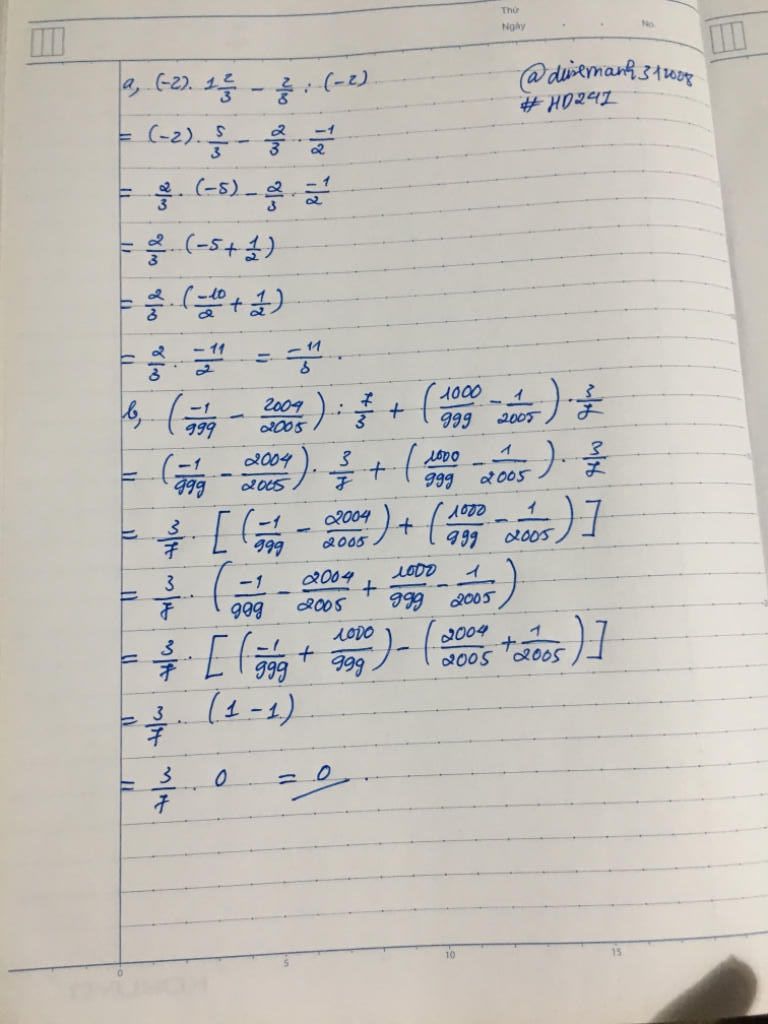 Thứ
Ngày . . No.
a, (-2). 1 2/3 - 2/3 : (-2)
@ducmanh312008
#HD247
= (-2). 5/3 - 2/3 . -1/2
= 2/3 . (-5) - 2/3 . -1/2
= 2/3 . (-5 + 1/2)
= 2/3 . (-10/2 + 1/2)
= 2/3 . -11/2 = -11/3 .
b, (-1/999 - 2004/2005) : 7/3 + (1000/999 - 1/2005) . 3/7
= (-1/999 - 2004/2005) . 3/7 + (1000/999 - 1/2005) . 3/7
= 3/7 . [(-1/999 - 2004/2005) + (1000/999 - 1/2005)]
= 3/7 . (-1/999 - 2004/2005 + 1000/999 - 1/2005)
= 3/7 . [(-1/999 + 1000/999) - (2004/2005 + 1/2005)]
= 3/7 . (1 - 1)
= 3/7 . 0 = 0 .
0 5 10 15